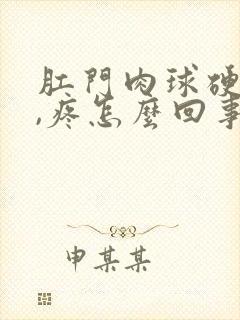 肛門肉球硬
,疼怎麼回事
申某某